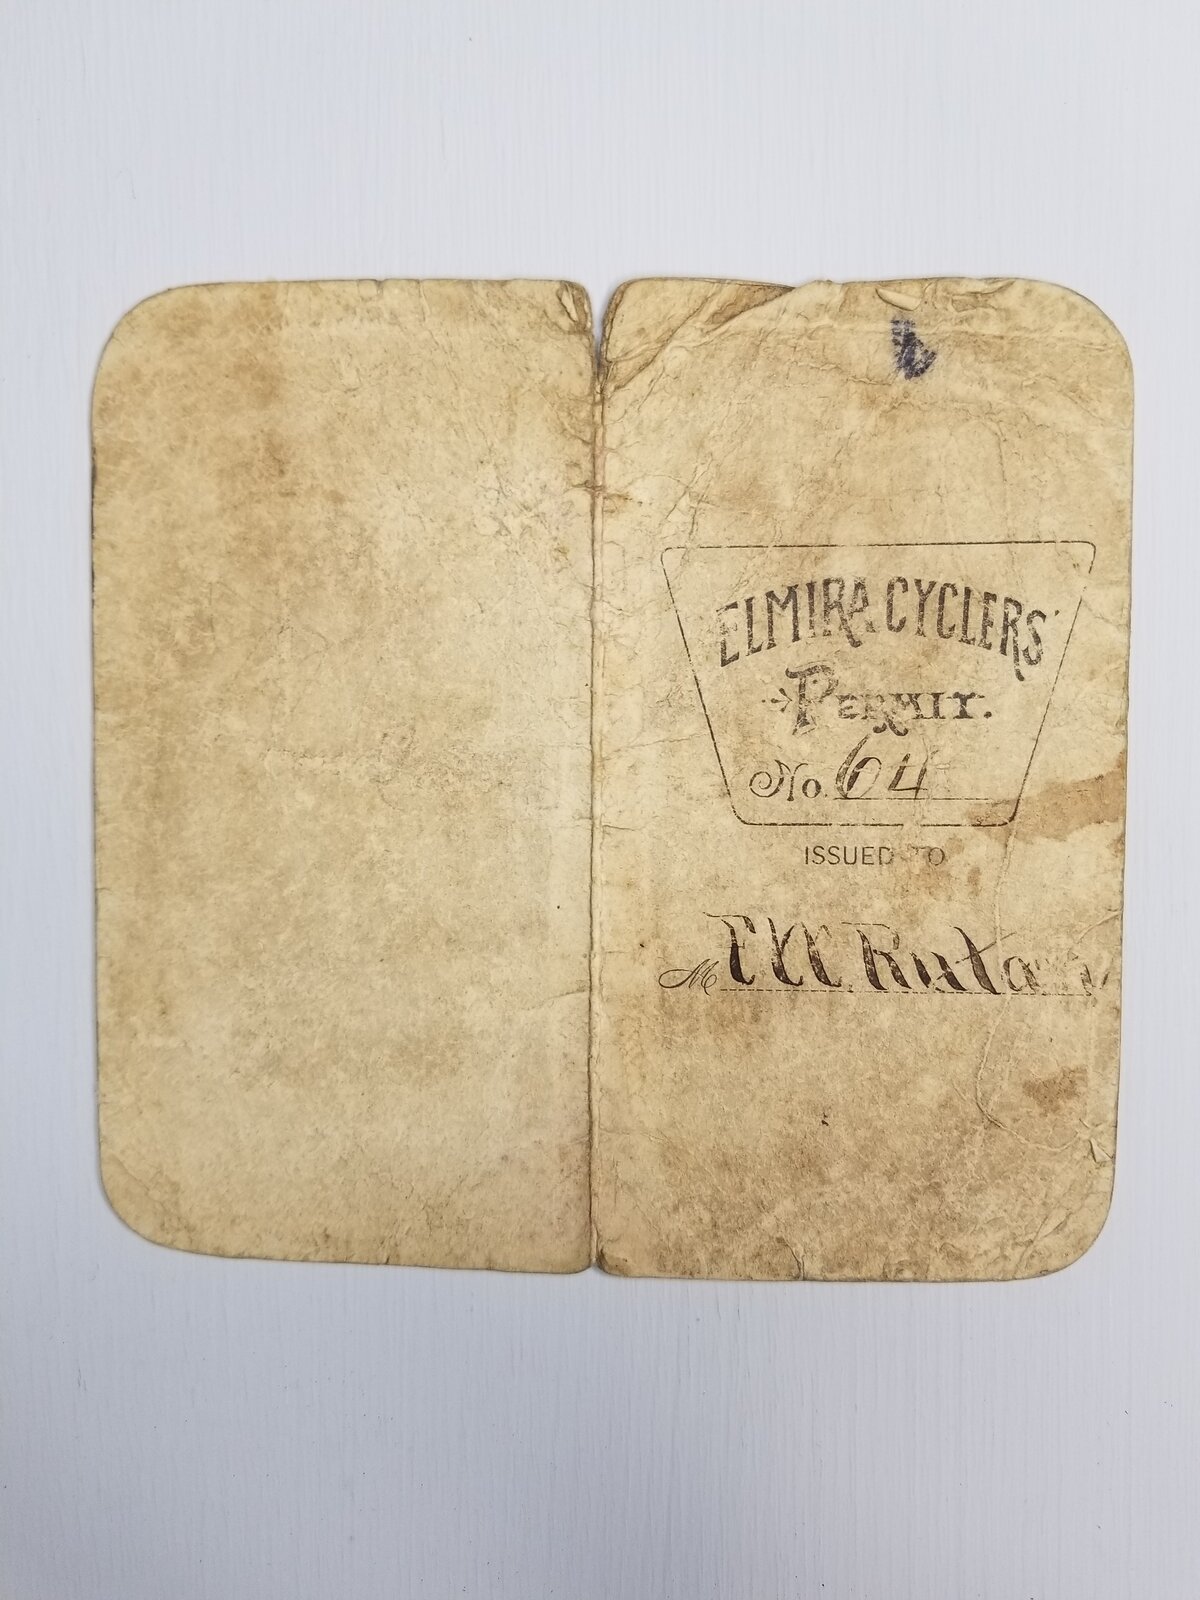 ELMIRA CYCLERS'
PERMIT.
No. 64
ISSUED TO
M Rutan